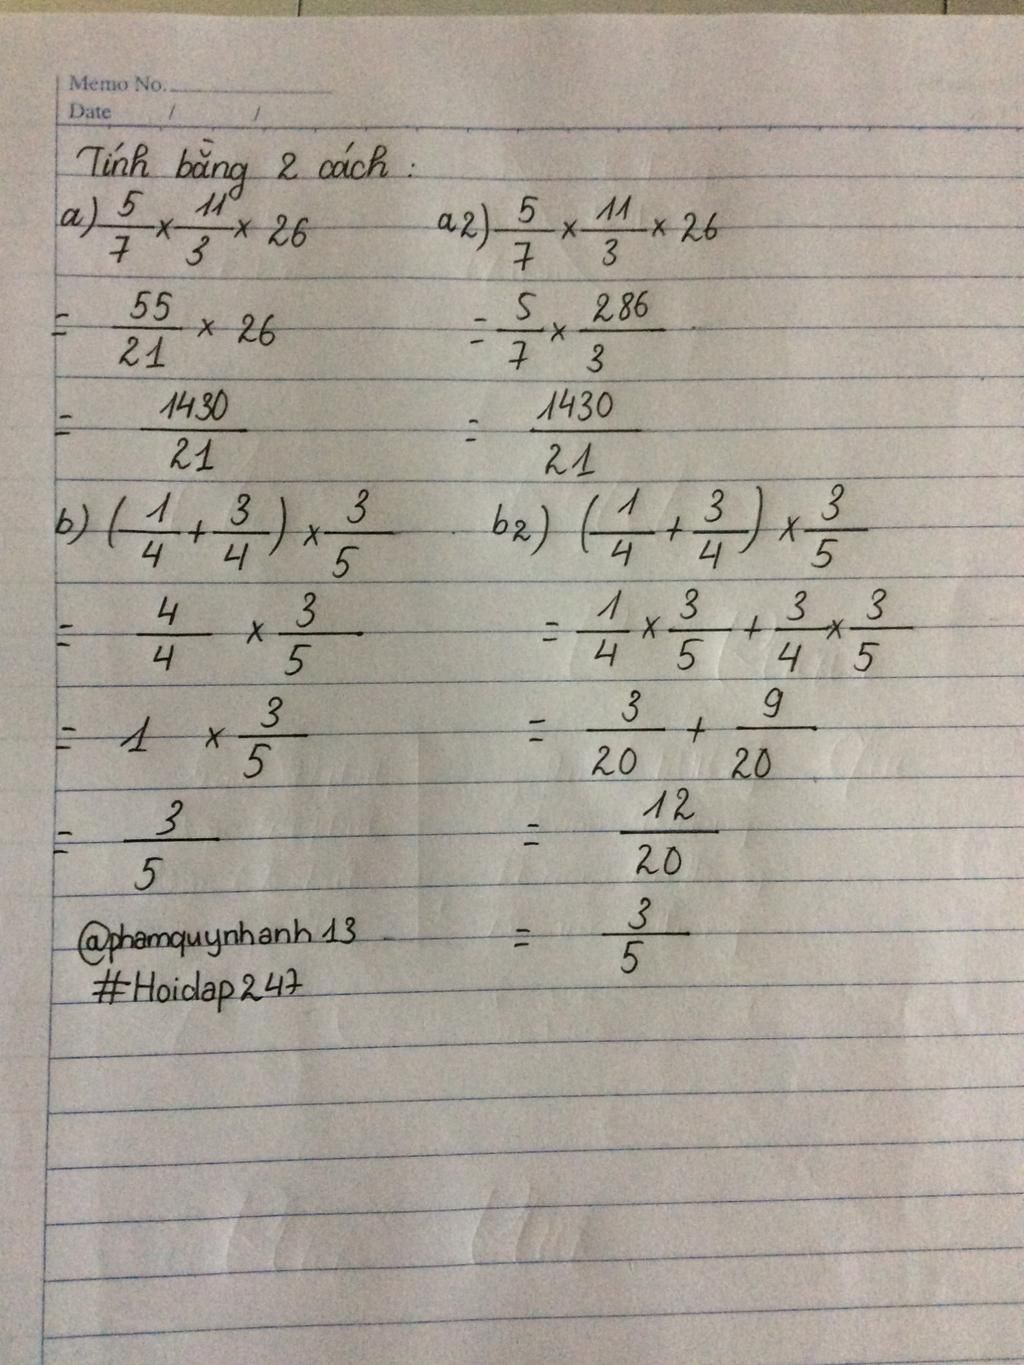 Memo No.
Date / /
Tính bằng 2 cách :
a) 5/7 × 11/3 × 26
= 55/21 × 26
= 1430/21
a2) 5/7 × 11/3 × 26
= 5/7 × 286/3
= 1430/21
b) (1/4 + 3/4) × 3/5
= 4/4 × 3/5
= 1 × 3/5
= 3/5
b2) (1/4 + 3/4) × 3/5
= 1/4 × 3/5 + 3/4 × 3/5
= 3/20 + 9/20
= 12/20
= 3/5
@phamquynhanh13
#Hoidap247